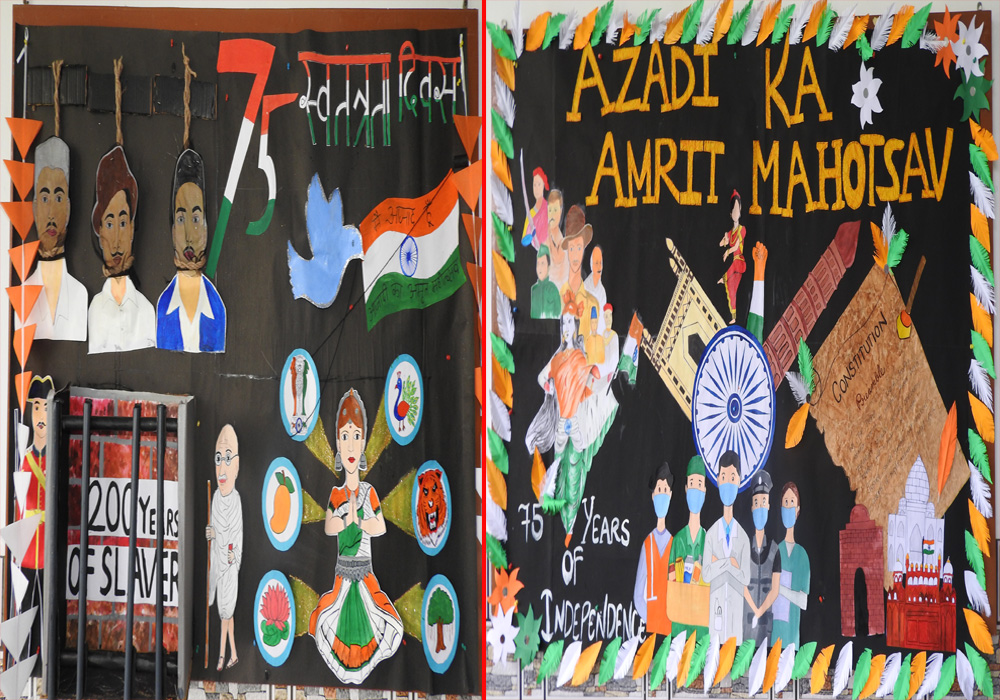 75
स्वतन्त्रता दिवस
200 YEARS
OF SLAVERY
AZADI KA
AMRIT MAHOTSAV
CONSTITUTION
75 YEARS
OF
INDEPENDENCE